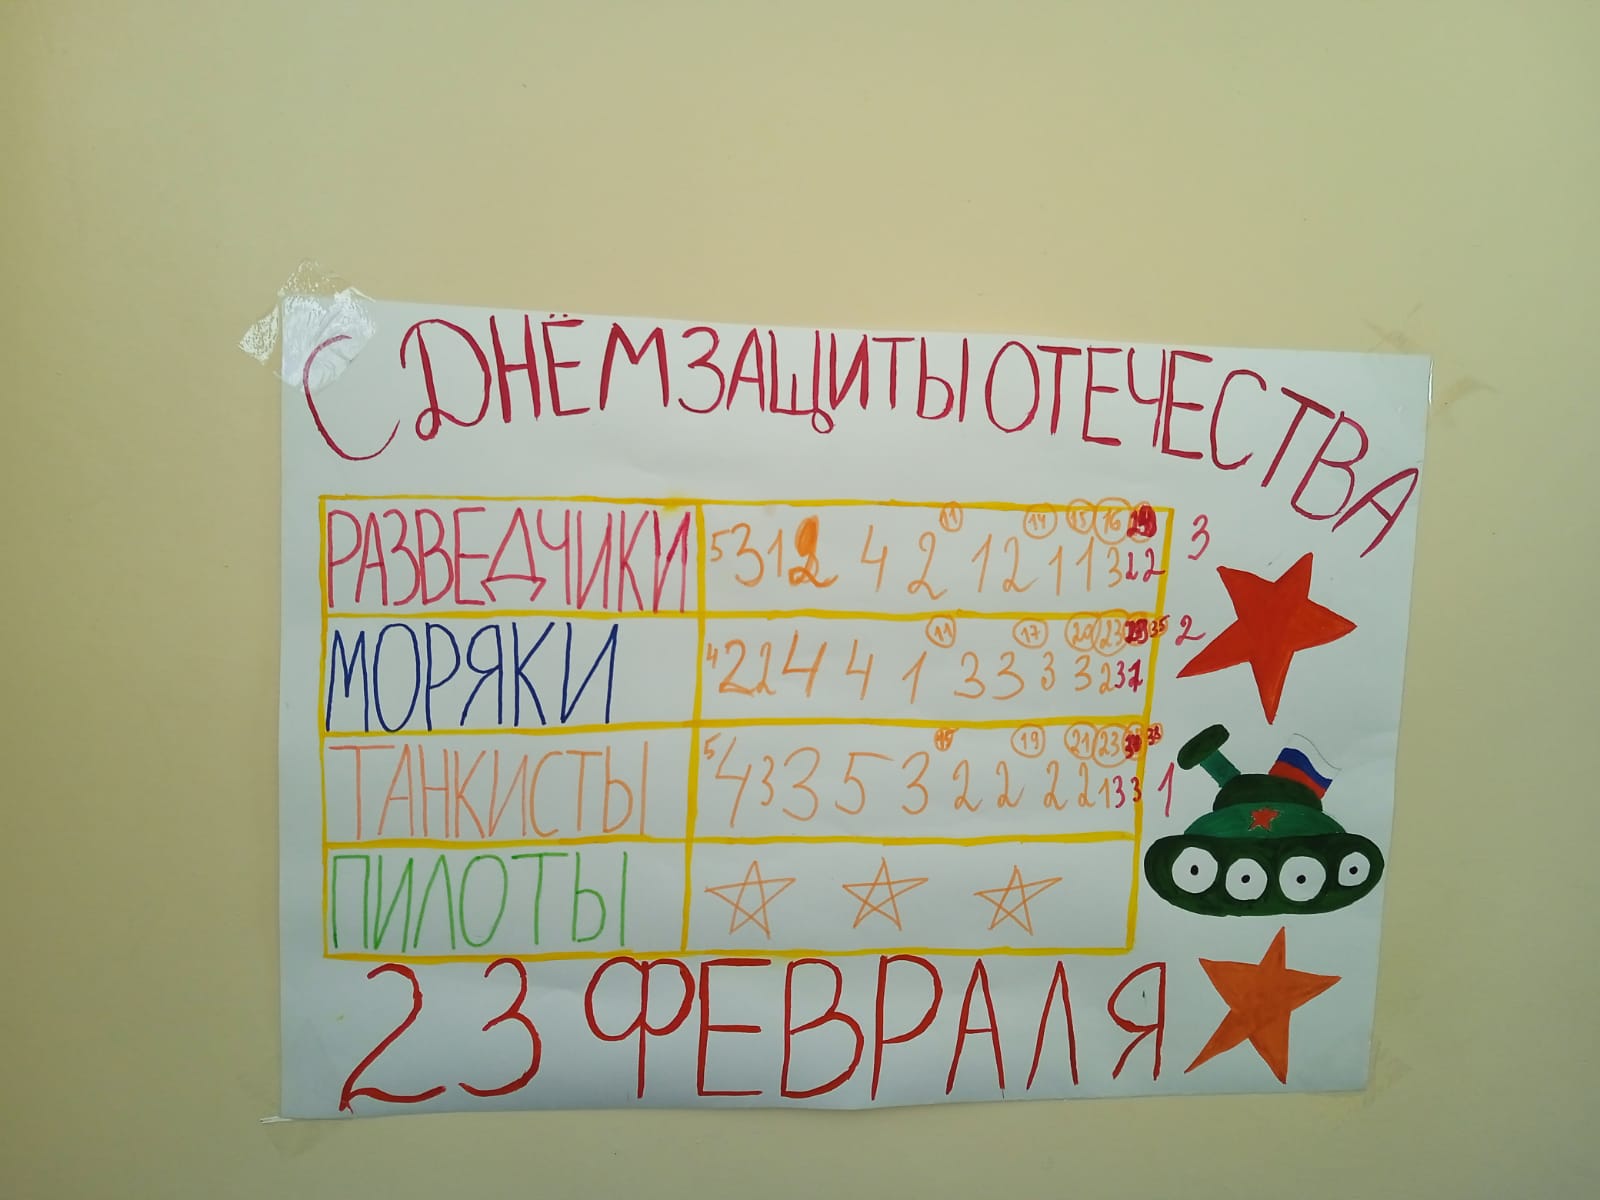 С ДНЁМ ЗАЩИТЫ ОТЕЧЕСТВА
11 14 15 16
РАЗВЕДЧИКИ 5 3 1 2 4 2 1 2 1 1 3 2 2 3
11 17 20 23 35
МОРЯКИ 4 2 2 4 4 1 3 3 3 3 2 3 2
15 19 21 23
ТАНКИСТЫ 5 4 3 3 5 3 2 2 2 2 1 3 3 1
ПИЛОТЫ
23 ФЕВРАЛЯ